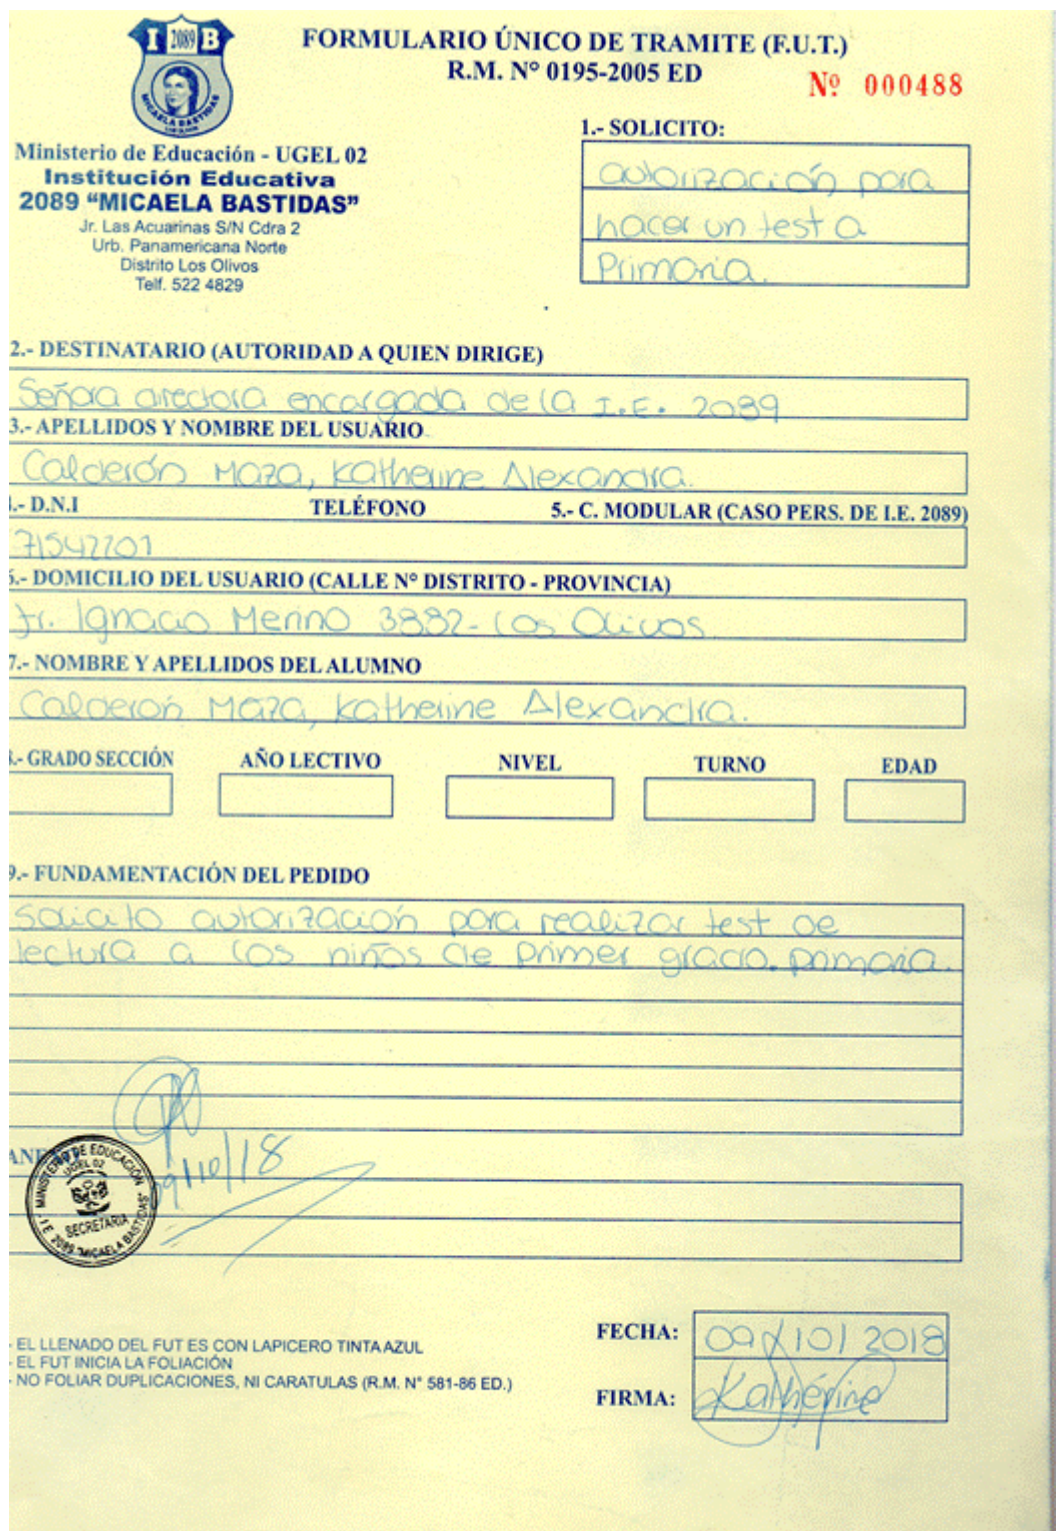 I 2089 B
MICAELA BASTIDAS
FORMULARIO ÚNICO DE TRAMITE (F.U.T.)
R.M. Nº 0195-2005 ED
Nº 000488
Ministerio de Educación - UGEL 02
Institución Educativa
2089 “MICAELA BASTIDAS”
Jr. Las Acuarinas S/N Cdra 2
Urb. Panamericana Norte
Distrito Los Olivos
Telf. 522 4829
1.- SOLICITO:
autorización para
hacer un test a
Primaria.
2.- DESTINATARIO (AUTORIDAD A QUIEN DIRIGE)
Señora directora encargada de la I.E. 2089
3.- APELLIDOS Y NOMBRE DEL USUARIO
Calderón Maza, Katherine Alexandra.
.- D.N.I TELÉFONO 5.- C. MODULAR (CASO PERS. DE I.E. 2089)
.- DOMICILIO DEL USUARIO (CALLE Nº DISTRITO - PROVINCIA)
Jr. Ignacio Merino 3882- Los Olivos
7.- NOMBRE Y APELLIDOS DEL ALUMNO
Calderón Maza, Katherine Alexandra.
.- GRADO SECCIÓN AÑO LECTIVO NIVEL TURNO EDAD
9.- FUNDAMENTACIÓN DEL PEDIDO
Solicito autorización para realizar test de
lectura a los niños de primer grado. primaria.
09/10/18
MINISTERIO DE EDUCACIÓN
UGEL 02
SECRETARIA
I.E. 2089 "MICAELA BASTIDAS"
- EL LLENADO DEL FUT ES CON LAPICERO TINTA AZUL
- EL FUT INICIA LA FOLIACIÓN
- NO FOLIAR DUPLICACIONES, NI CARATULAS (R.M. N° 581-86 ED.)
FECHA: 09/10/2018
FIRMA: Katherine